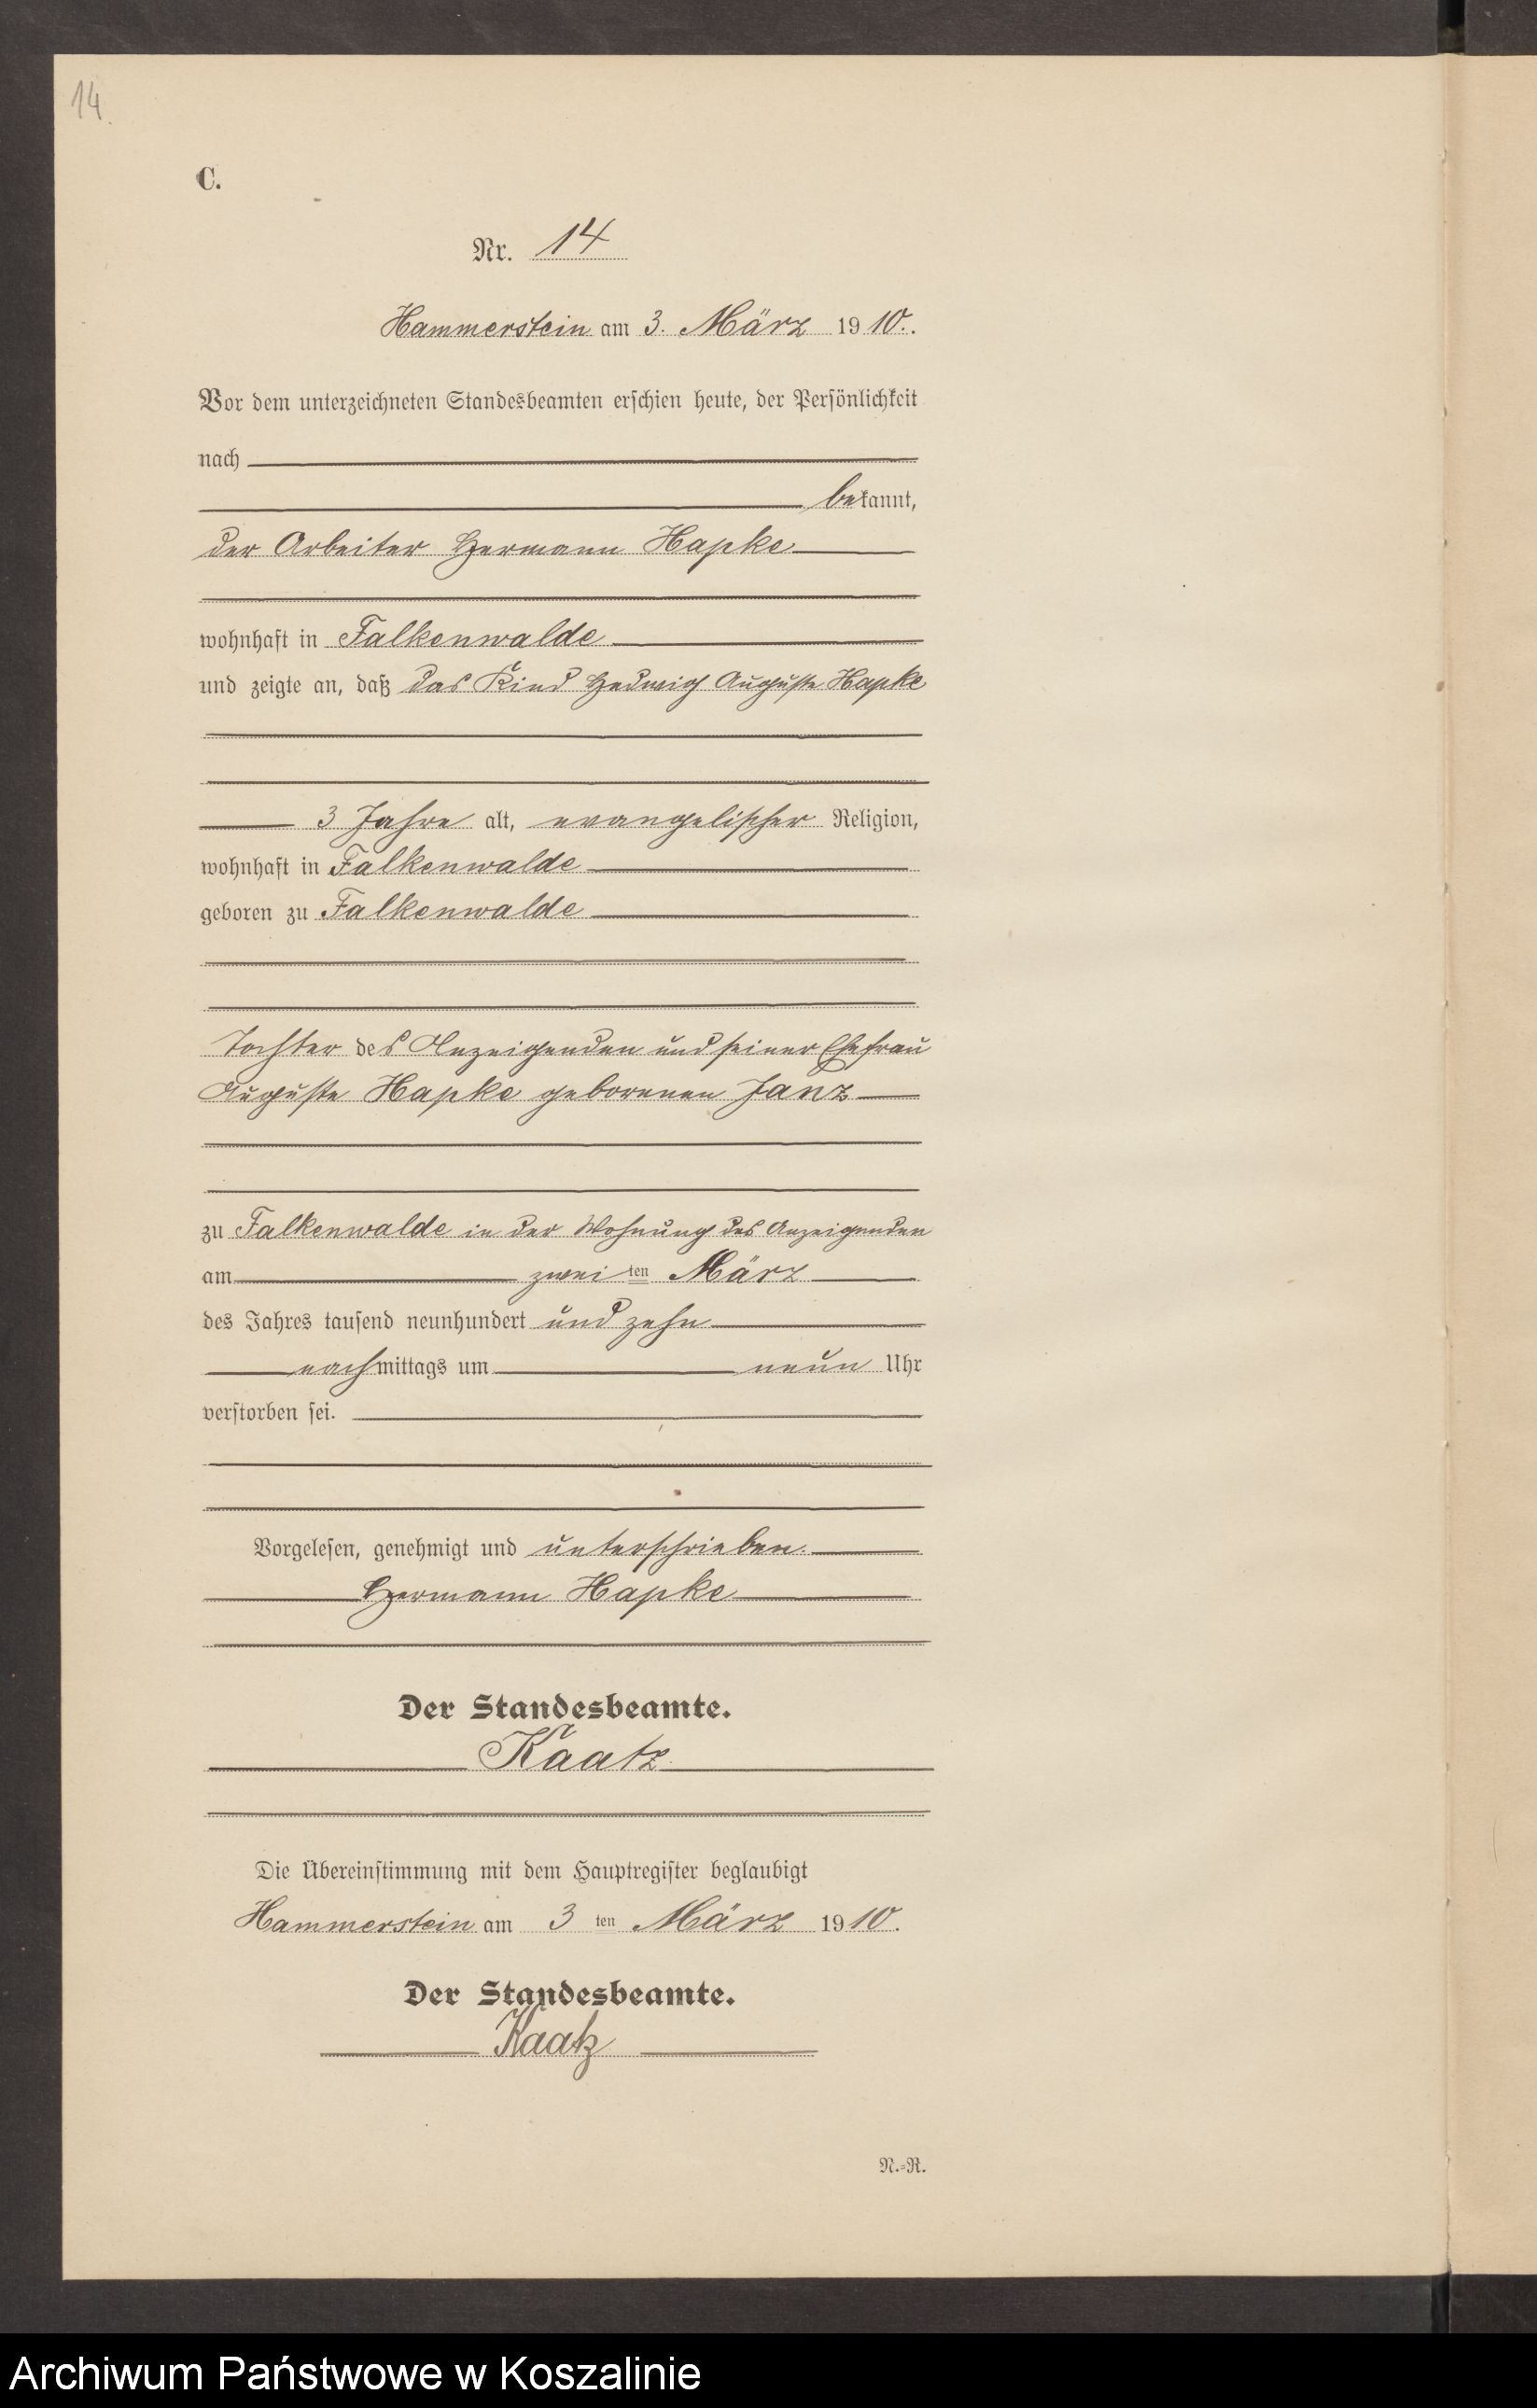 14
C.
Nr. 14
Hammerstein am 3. März 1910.
Vor dem unterzeichneten Standesbeamten erschien heute, der Persönlichkeit
nach
bekannt,
der Arbeiter Hermann Hapke
wohnhaft in Falkenwalde
und zeigte an, daß das Kind Hedwig Auguste Hapke
3 Jahre alt, evangelischer Religion,
wohnhaft in Falkenwalde
geboren zu Falkenwalde
Tochter des Anzeigenden und seiner Ehefrau
Auguste Hapke geborenen Janz
zu Falkenwalde in der Wohnung des Anzeigenden
am zwei ten März
des Jahres tausend neunhundert und zehn
nachmittags um neun Uhr
verstorben sei.
Vorgelesen, genehmigt und unterschrieben.
Hermann Hapke
Der Standesbeamte.
Kaatz
Die Übereinstimmung mit dem Hauptregister beglaubigt
Hammerstein am 3 ten März 1910.
Der Standesbeamte.
Kaatz
N.=R.
Archiwum Państwowe w Koszalinie